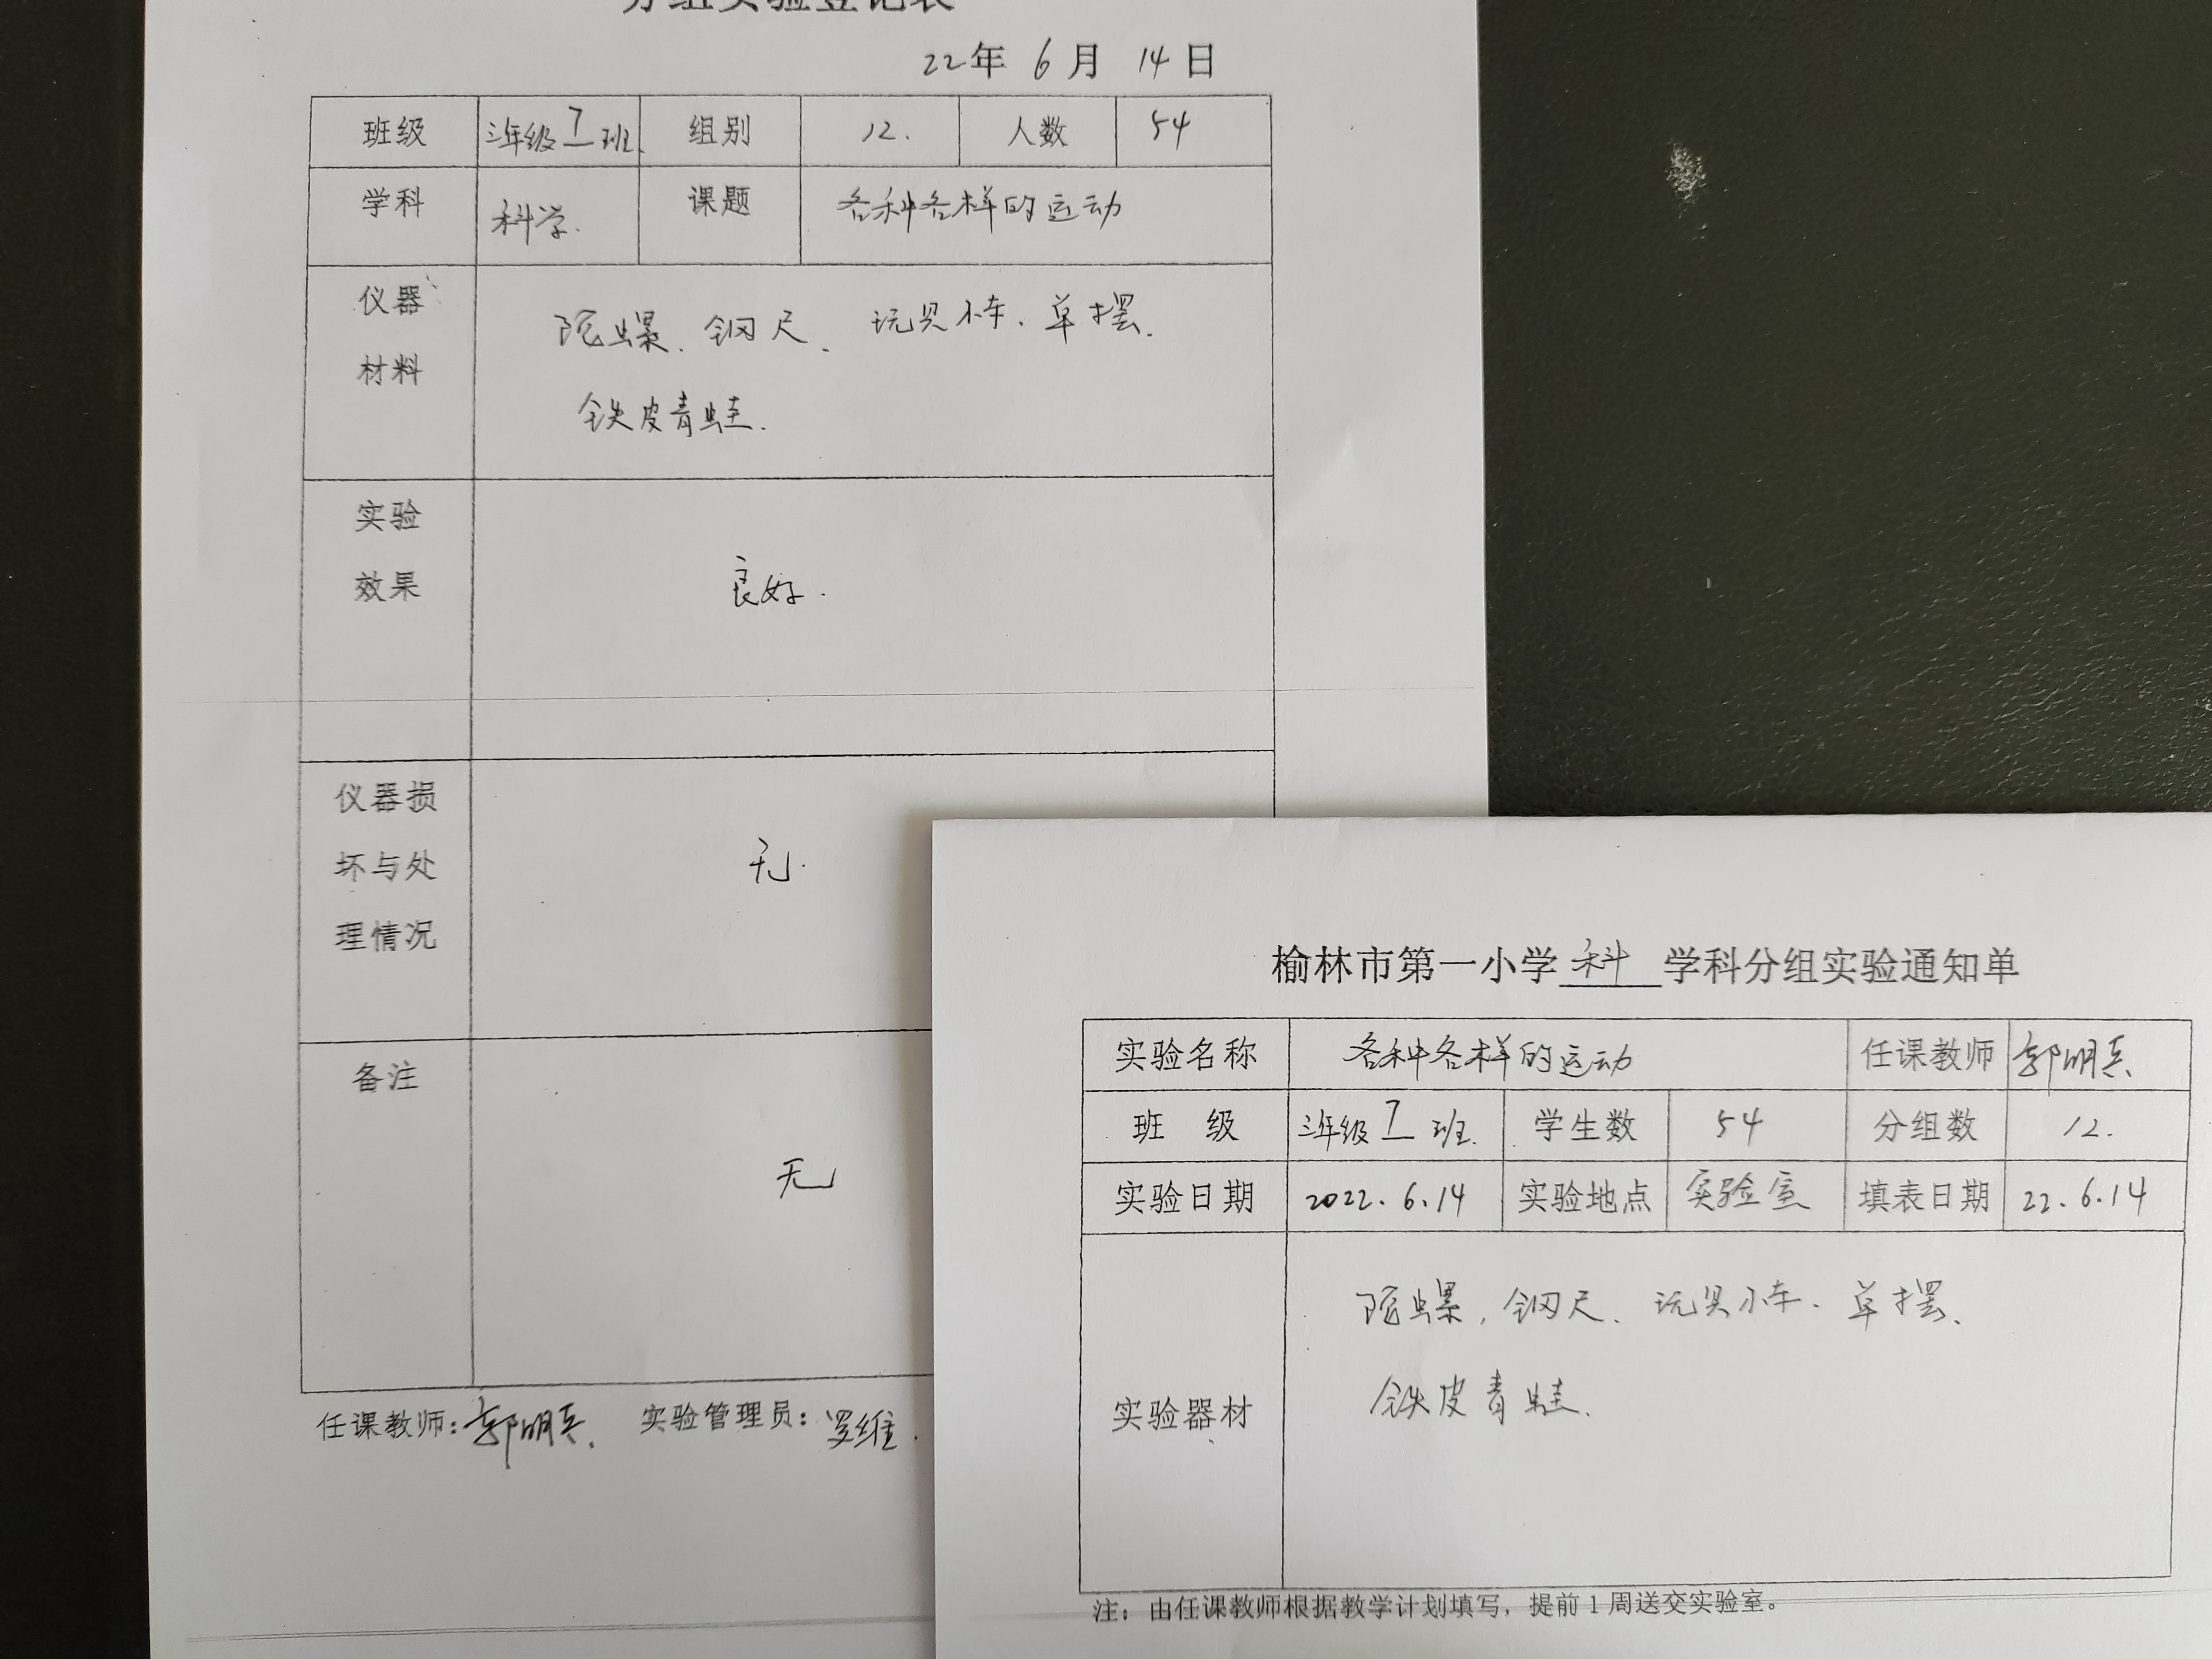 分组实验登记表
22年 6月 14日
班级 三年级 7 班. 组别 12. 人数 54
学科 科学. 课题 各种各样的运动
仪器材料 陀螺、钢尺、玩具小车、单摆、
铁皮青蛙.
实验效果 良好.
仪器损坏与处理情况 无.
备注 无
任课教师:郭明兵. 实验管理员:罗维.
榆林市第一小学 科 学科分组实验通知单
实验名称 各种各样的运动 任课教师 郭明兵.
班 级 三年级 7 班. 学生数 54 分组数 12.
实验日期 2022.6.14 实验地点 实验室 填表日期 22.6.14
实验器材 陀螺,钢尺、玩具小车、单摆、
铁皮青蛙.
注:由任课教师根据教学计划填写,提前1周送交实验室。